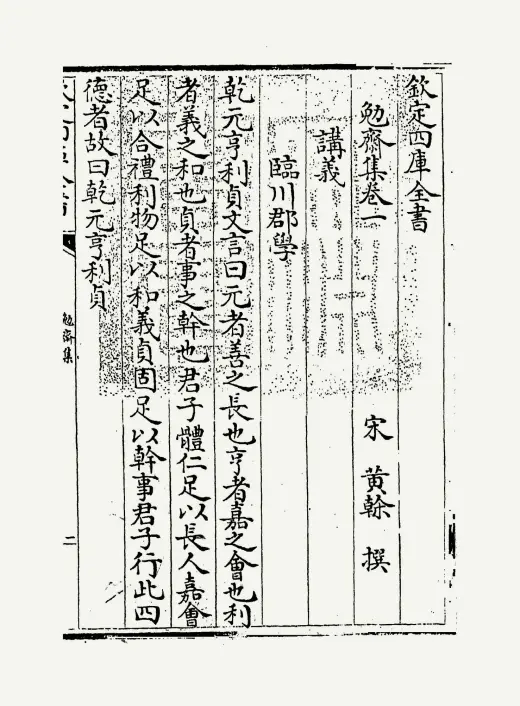 欽定四庫全書
勉齋集卷一
宋 黃榦 撰
講義
臨川郡學
乾元亨利貞文言曰元者善之長也亨者嘉之會也利
者義之和也貞者事之幹也君子體仁足以長人嘉會
足以合禮利物足以和義貞固足以幹事君子行此四
德者故曰乾元亨利貞
勉齋集
二